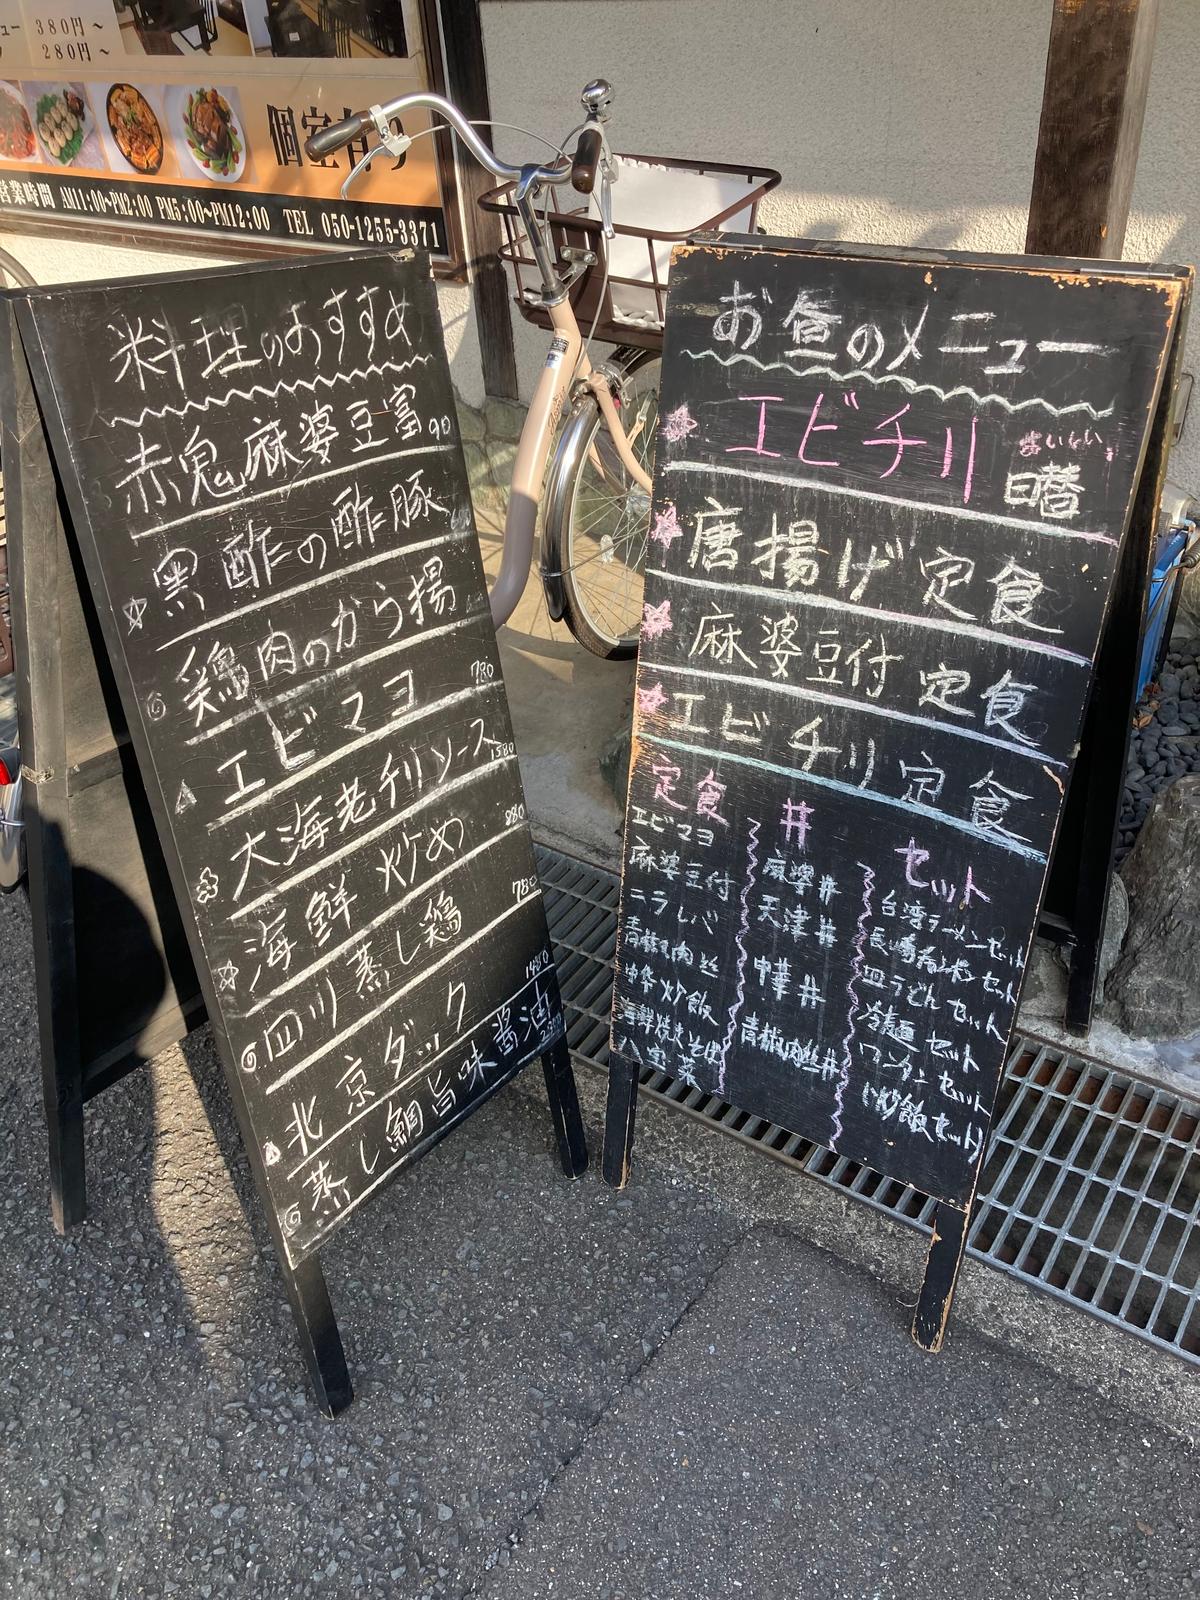 380円～
280円～
個室有り
営業時間 AM11:00~PM2:00 PM5:00~PM12:00 TEL 050-1255-3371
料理のおすすめ
赤鬼麻婆豆富
黒酢の酢豚
鶏肉のから揚
エビマヨ 780
大海老チリソース 1580
海鮮炒め 880
四川蒸し鶏 780
北京ダック 1480
蒸し鯛旨味醤油
お昼のメニュー
エビチリ
唐揚げ定食
麻婆豆付定食
エビチリ定食
定食
エビマヨ
麻婆豆付
ニラレバ
青椒肉絲
中華炒飯
海鮮焼きそば
八宝菜
丼
麻婆丼
天津丼
中華丼
青椒肉絲丼
セット
台湾ラーメンセット
長崎チャンポンセット
皿うどんセット
冷麺セット
ワンタンセット
(炒飯セット)